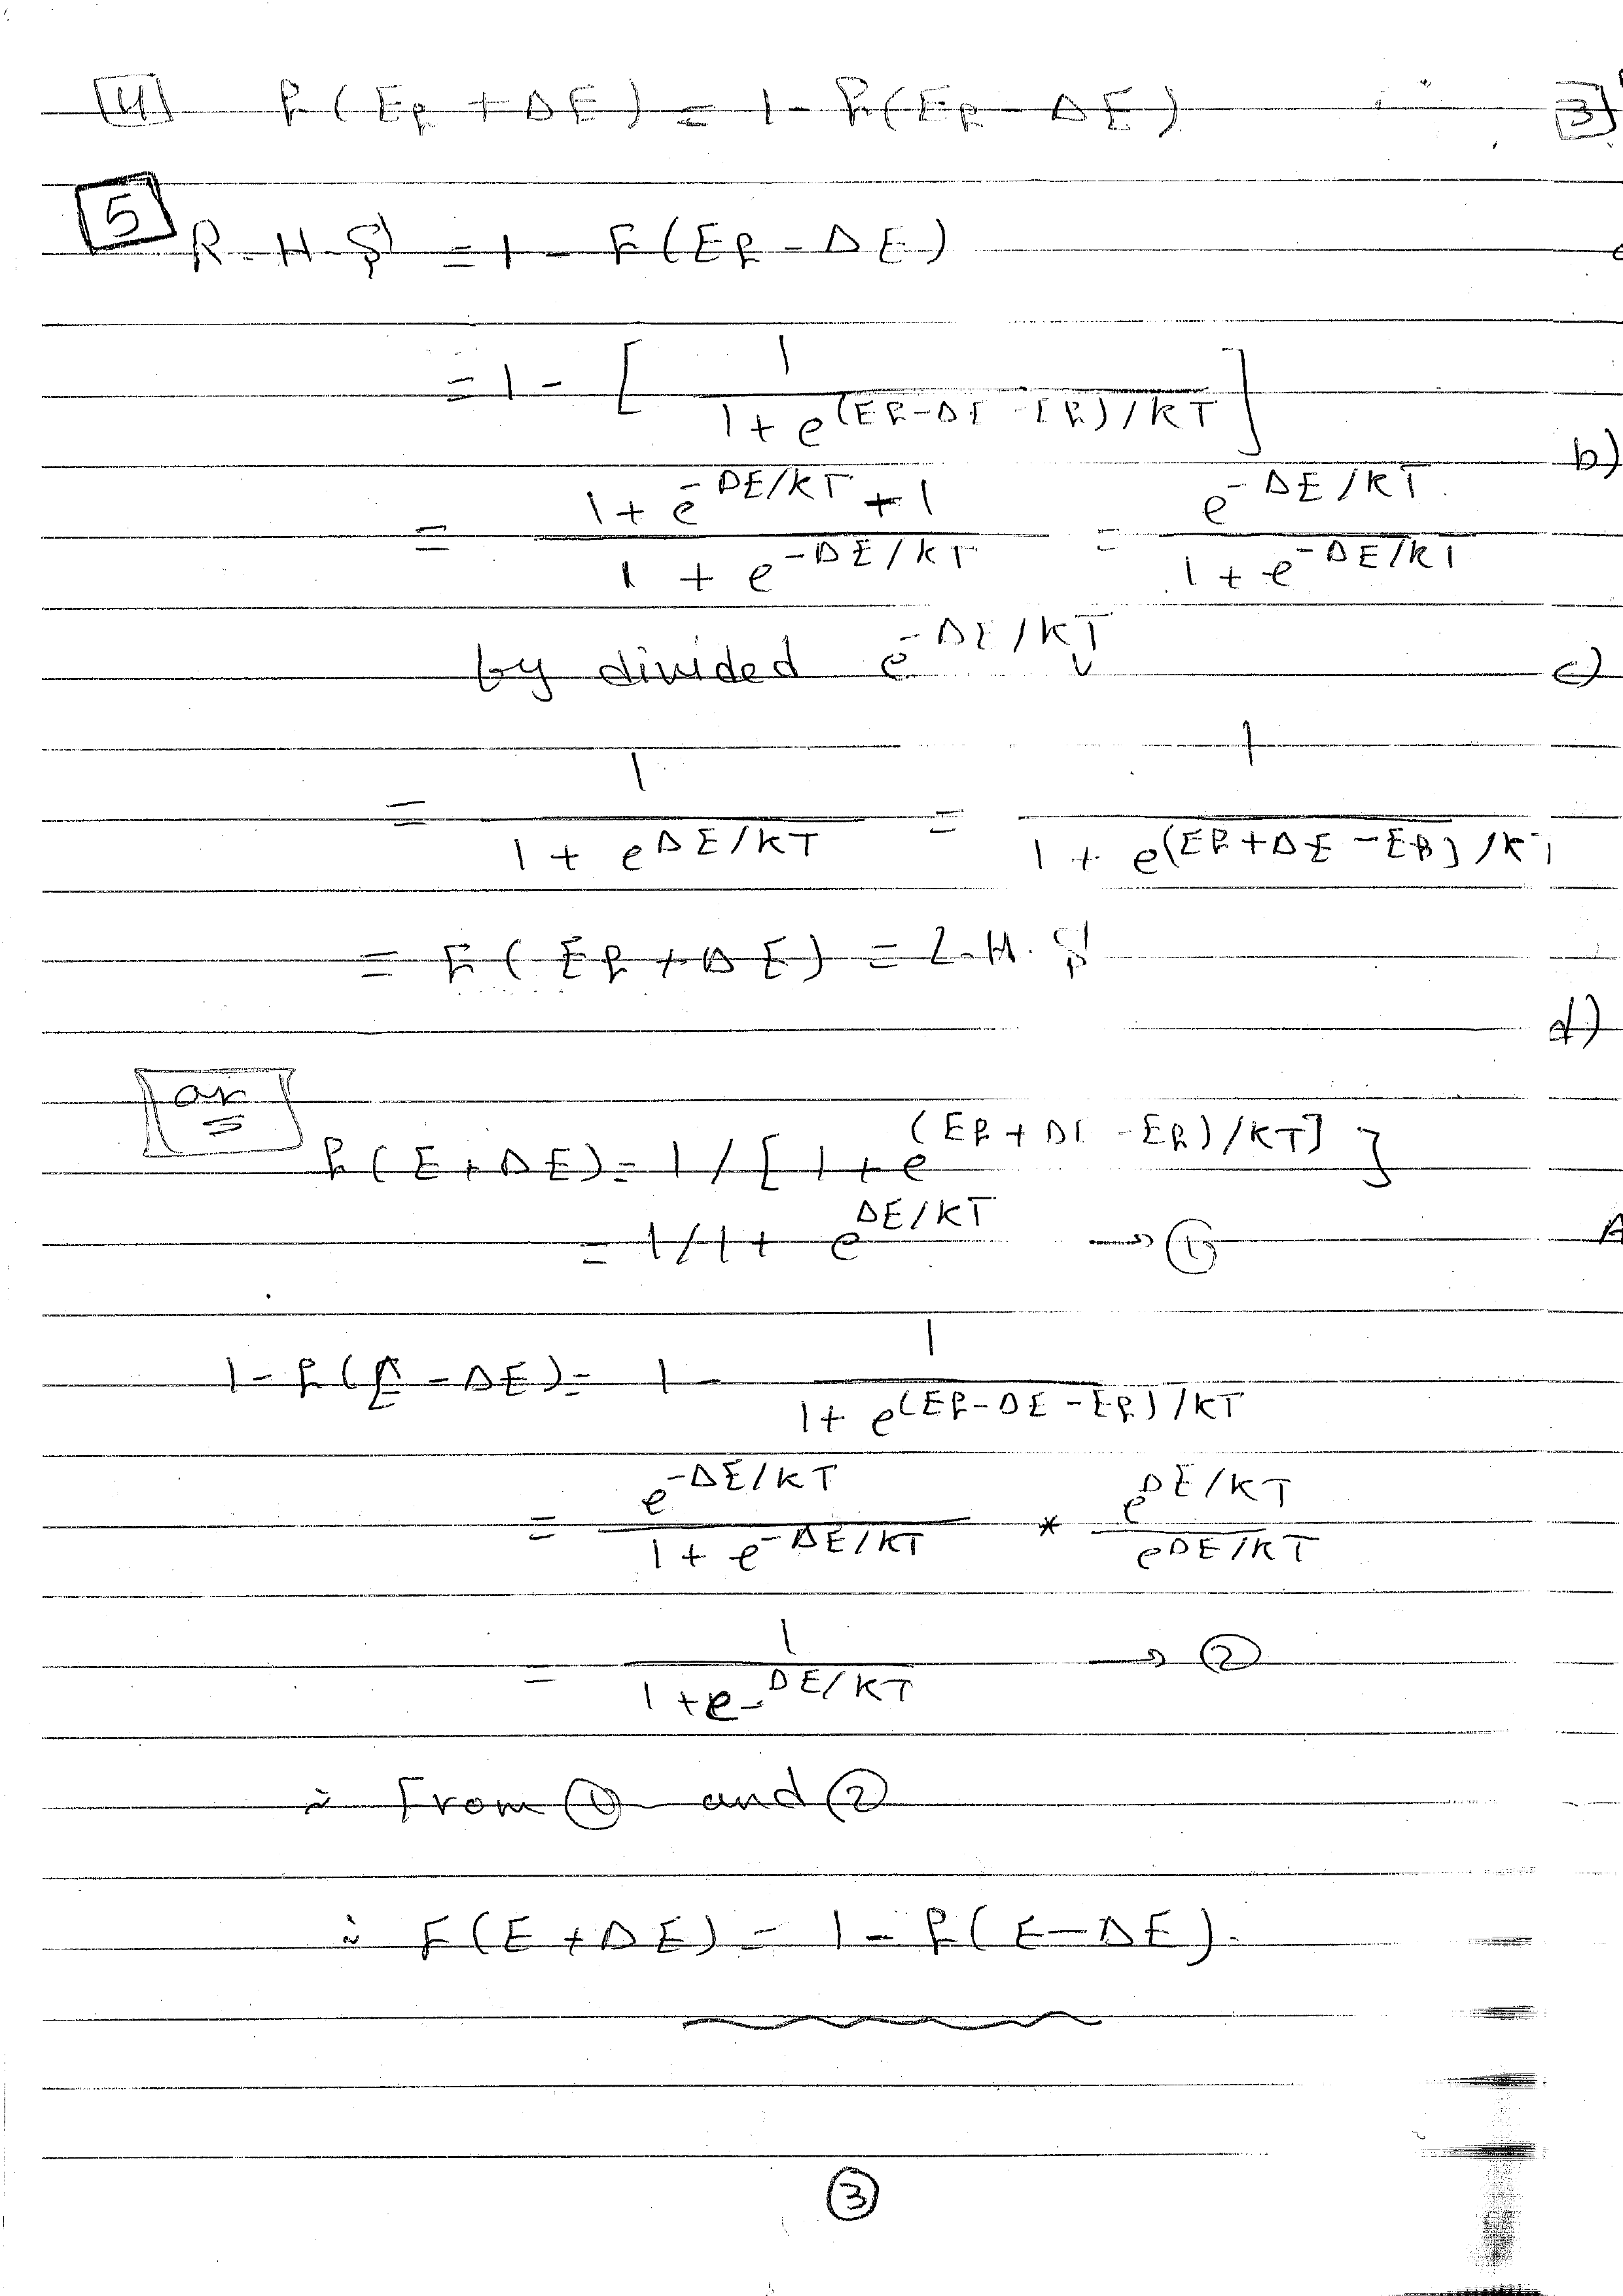 4 f(Ef + ΔE) = 1 - f(Ef - ΔE) 3
5
R.H.S = 1 - F(Ef - ΔE)
= 1 - [ 1 / 1 + e^(Ef-ΔE-Ef)/KT ]
b)
= 1 + e^-ΔE/KT + 1 / 1 + e^-ΔE/KT = e^-ΔE/KT / 1 + e^-ΔE/KT
by divided e^-ΔE/KT
c)
= 1 / 1 + e^ΔE/KT = 1 / 1 + e^(Ef+ΔE-Ef)/KT
= F(Ef + ΔE) = L.H.S
d)
or
f(E+ΔE) = 1/[1+e^(Ef+ΔE-Ef)/KT] ]
= 1/1+ e^ΔE/KT → ①
A
1 - f(E-ΔE) = 1 - 1 / 1+ e^(Ef-ΔE-Ef)/KT
= e^-ΔE/KT / 1 + e^-ΔE/KT * e^ΔE/KT / e^ΔE/KT
= 1 / 1+e-^ΔE/KT → ②
∴ From ① and ②
∴ F(E+ΔE) = 1 - f(E-ΔE).
③